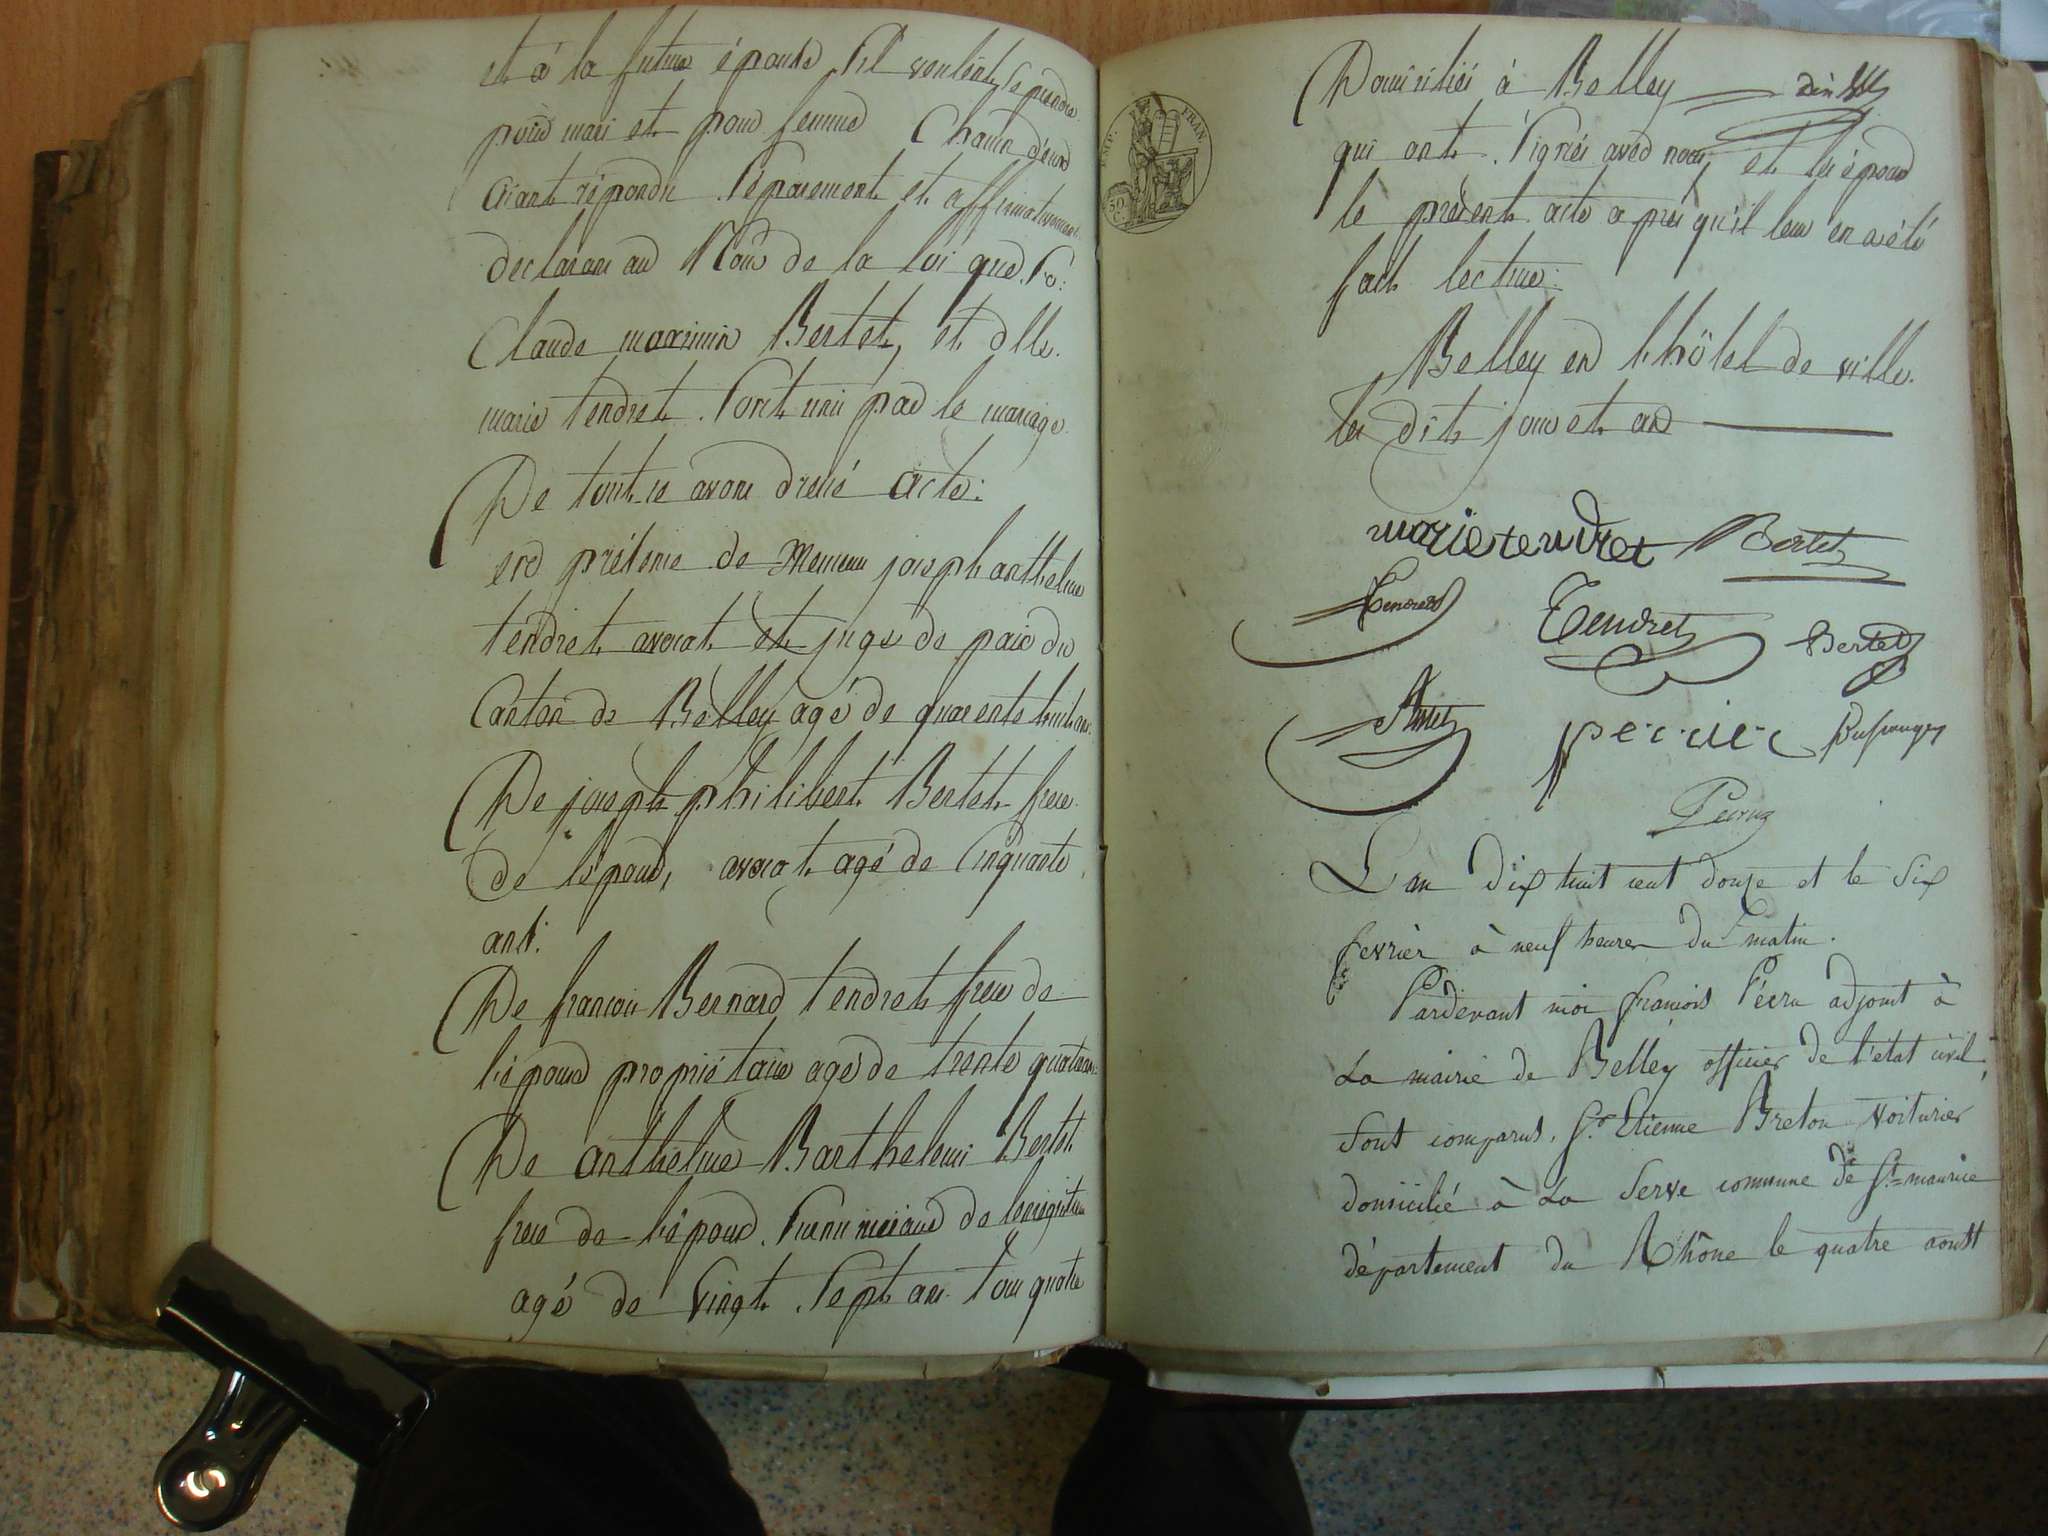 et à la future épouse s'il veulent se prendre
pour mari et pour femme Chacun d'eux
aiant répondu séparement et affirmativement
declarons au Nom de la loi que Sr:
Claude maximin Bertet, et dlle.
marie tendret sont unis par le mariage.
De tout ce avons dressé acte:
en présence de Messieurs joseph anthelme
tendret avocat et juge de paix du
Canton de Belley agé de quarente huit ans.
De joseph philibert Bertet frere
de l'épous, avocat agé de Cinquante
ans.
De francois Bernard tendret frere de
l'épouse propriétaire agé de trente quatre ans.
De anthelme Barthelemi Bertet
frere de l'épous surnuméraire de l'enregistrem
agé de vingt sept ans tous quatre
EMP. FRAN.
50 C.
Domiciliés à Belley
qui ont signés avec nous, et les épous
le présent acte après qu'il leur en a été
fait lecture:
Belley en l'hôtel de ville
les dits jour et an
marie tendret Bertet
Tendret Tendret Bertet
perrier
L'an dix huit cent douze et le six
fevrier à neuf heures du matin.
Pardevant moi francois Pécru adjoint à
La mairie de Belley officier de l'état civil;
sont comparus, Sr. Etienne Breton voiturier
domicilié à La Serve commune de St. maurice
département du Rhône le quatre aoust